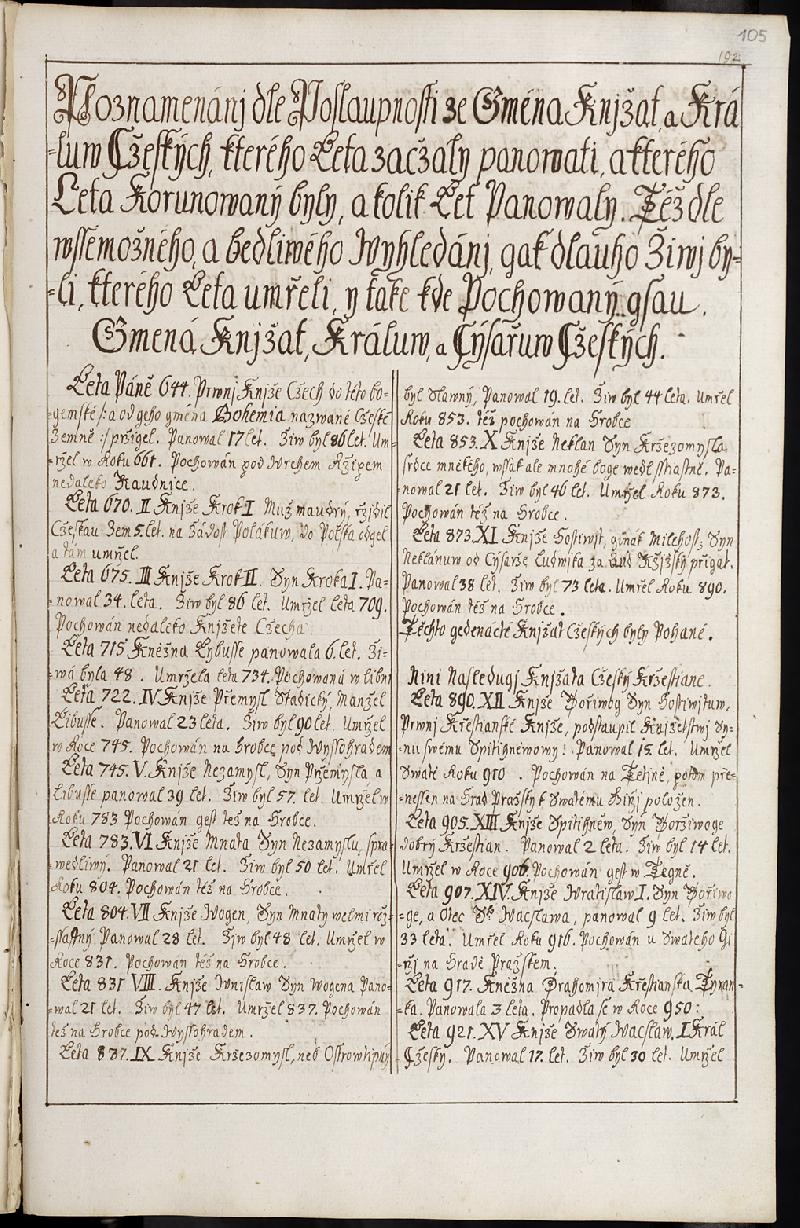 105
192
Poznamenánj dle Poslaupnosti ze Gména Knjžat, a Krá
-luw Cžeských, kterého Leta začzaly panowati, a kterého
Leta Korunowaný byly, a kolik Let Panowaly. Též dle
wssemožného, a bedliwého Wyhledánj, gak dlauho Žiwj by=
-li, kterého Leta umřeli, y take kde Pochowaný gsau.
Gmená Knjžat, Králuw, a Cýsařuw Cžeských.
Leta Páně 644. Prwnj Knjže Cžech do této bo-
-gemské /: a od geho gména Bohemia nazwané Cžeské
Zemně :/ pržigel. Panowal 17 let. Žiw byl 86 let. Um-
-ržel w Roku 661. Pochowán pod Wrchem Ržipem
nedaleko Raudnice.
Leta 670. II Knjže Krok I. Muž maudrý, ržjdil
Cžeskau Zem 5. let. na Žádost Polákuw, do Polska odgel
a tám umržel.
Leta 675. III Knjže Krok II. Syn Kroka I. Pa-
-nowal 34. leta. Žiw byl 86 let. Umržel leta 709.
Pochowán nedaleko Knjžete Cžecha
Leta 715. Kněžna Lybusse panowala 6. let. Ži-
-wá byla 48. Umržela leta 734. Pochowaná w Libni
Leta 722. IV Knjže Přemysl Stadický, Manžel
Libusse. Panowal 23 leta. Žiw byl 90 let. Umržel
w Roce 745. Pochowán na Hrobce pod Wyssohradem
Leta 745. V. Knjže Nezamysl, Syn Pržemysla a
Libusse panowal 39 let. Žiw byl 57. let. Umržel w
Roku 783 Pochowán gest též na Hrobce.
Leta 783. VI Knjže Mnata Syn Nezamyslu, spra
wedliwý. Panowal 21 let. Žiw byl 50 let. Umřel
Roku 804. Pochowán též na Hrobce.
Leta 804. VII Knjže Wogen, Syn Mnaty welmi
-sstastný. Panowal 28 let. Žiw byl 48 let. Umržel w
Roce 831. Pochowán též na Hrobce.
Leta 831 VIII. Knjže Wnislaw Syn Wogena, Pano-
-wal 21 let. Žiw byl 47 let. Umržel 837. Pochowán
též na Hrobce pod Wyssohradem.
Leta 837. IX Knjže Kržezomysl, neb Ostrowtipný
byl Slawný, Panowal 19. let. Žiw byl 44 leta. Umřel
Roku 853. též pochowán na Hrobce
Leta 853. X Knjže Neklan Syn Kržezomysla
srdce mnikého, wssak ale mnohé boge wedl sstiastně. Pa-
nowal 21 let. Žiw byl 46 let. Umržel Roku 873.
Pochowán též na Hrobce.
Leta 873. XI. Knjže Hostiwjt, ginák Milehost, Syn
Neklánuw od Cýsarže Ludwika za Lud Ržjžský přigat.
Panowal 38 let. Žiw byl 73 leta. Umřel Roku 890.
Pochowán též na Hrobce.
Těchto gedenácte Knjžat Cžeských byly Pohané.
Nini Nasledugj Knjžata Cžeský Kržestiané.
Leta 890. XII Knjže Boržiwog Syn Hostiwjtuw,
Prwnj Křestianské Knjže, podstaupil Knjžetstwj Sy-
-nu swému Spitihněwowy: Panowal 15 let. Umržel
Swatě Roku 910. Pochowán na Tetjně, potom pře-
-nessen na Hrad Pražský k Swatému Giřj položen.
Leta 905. XIII Knjže Spitihněw, Syn Boržiwoge
dobrý Kržestian. Panowal 2 leta. Žiw byl 14 let.
Umržel w Roce 906. Pochowán gest w Tegně.
Leta 907. XIV. Knjže Wratislaw I. Syn Bořiwo
-ge, a Otec St. Wacslawa, panowal 9 let. Žiw byl
33 leta. Umřel Roku 916. Pochowán u Swateho Gi
-řj na Hradě Pražském.
Leta 917. Kněžna Drahomira Křestianská Tyran-
-ka. Panowala 3 leta. Propadla se w Roce 950.
Leta 921. XV Knjže Swatý Wacslaw. I Král
Cžeský. Panowal 17. let. Žiw byl 30 let. Umržel